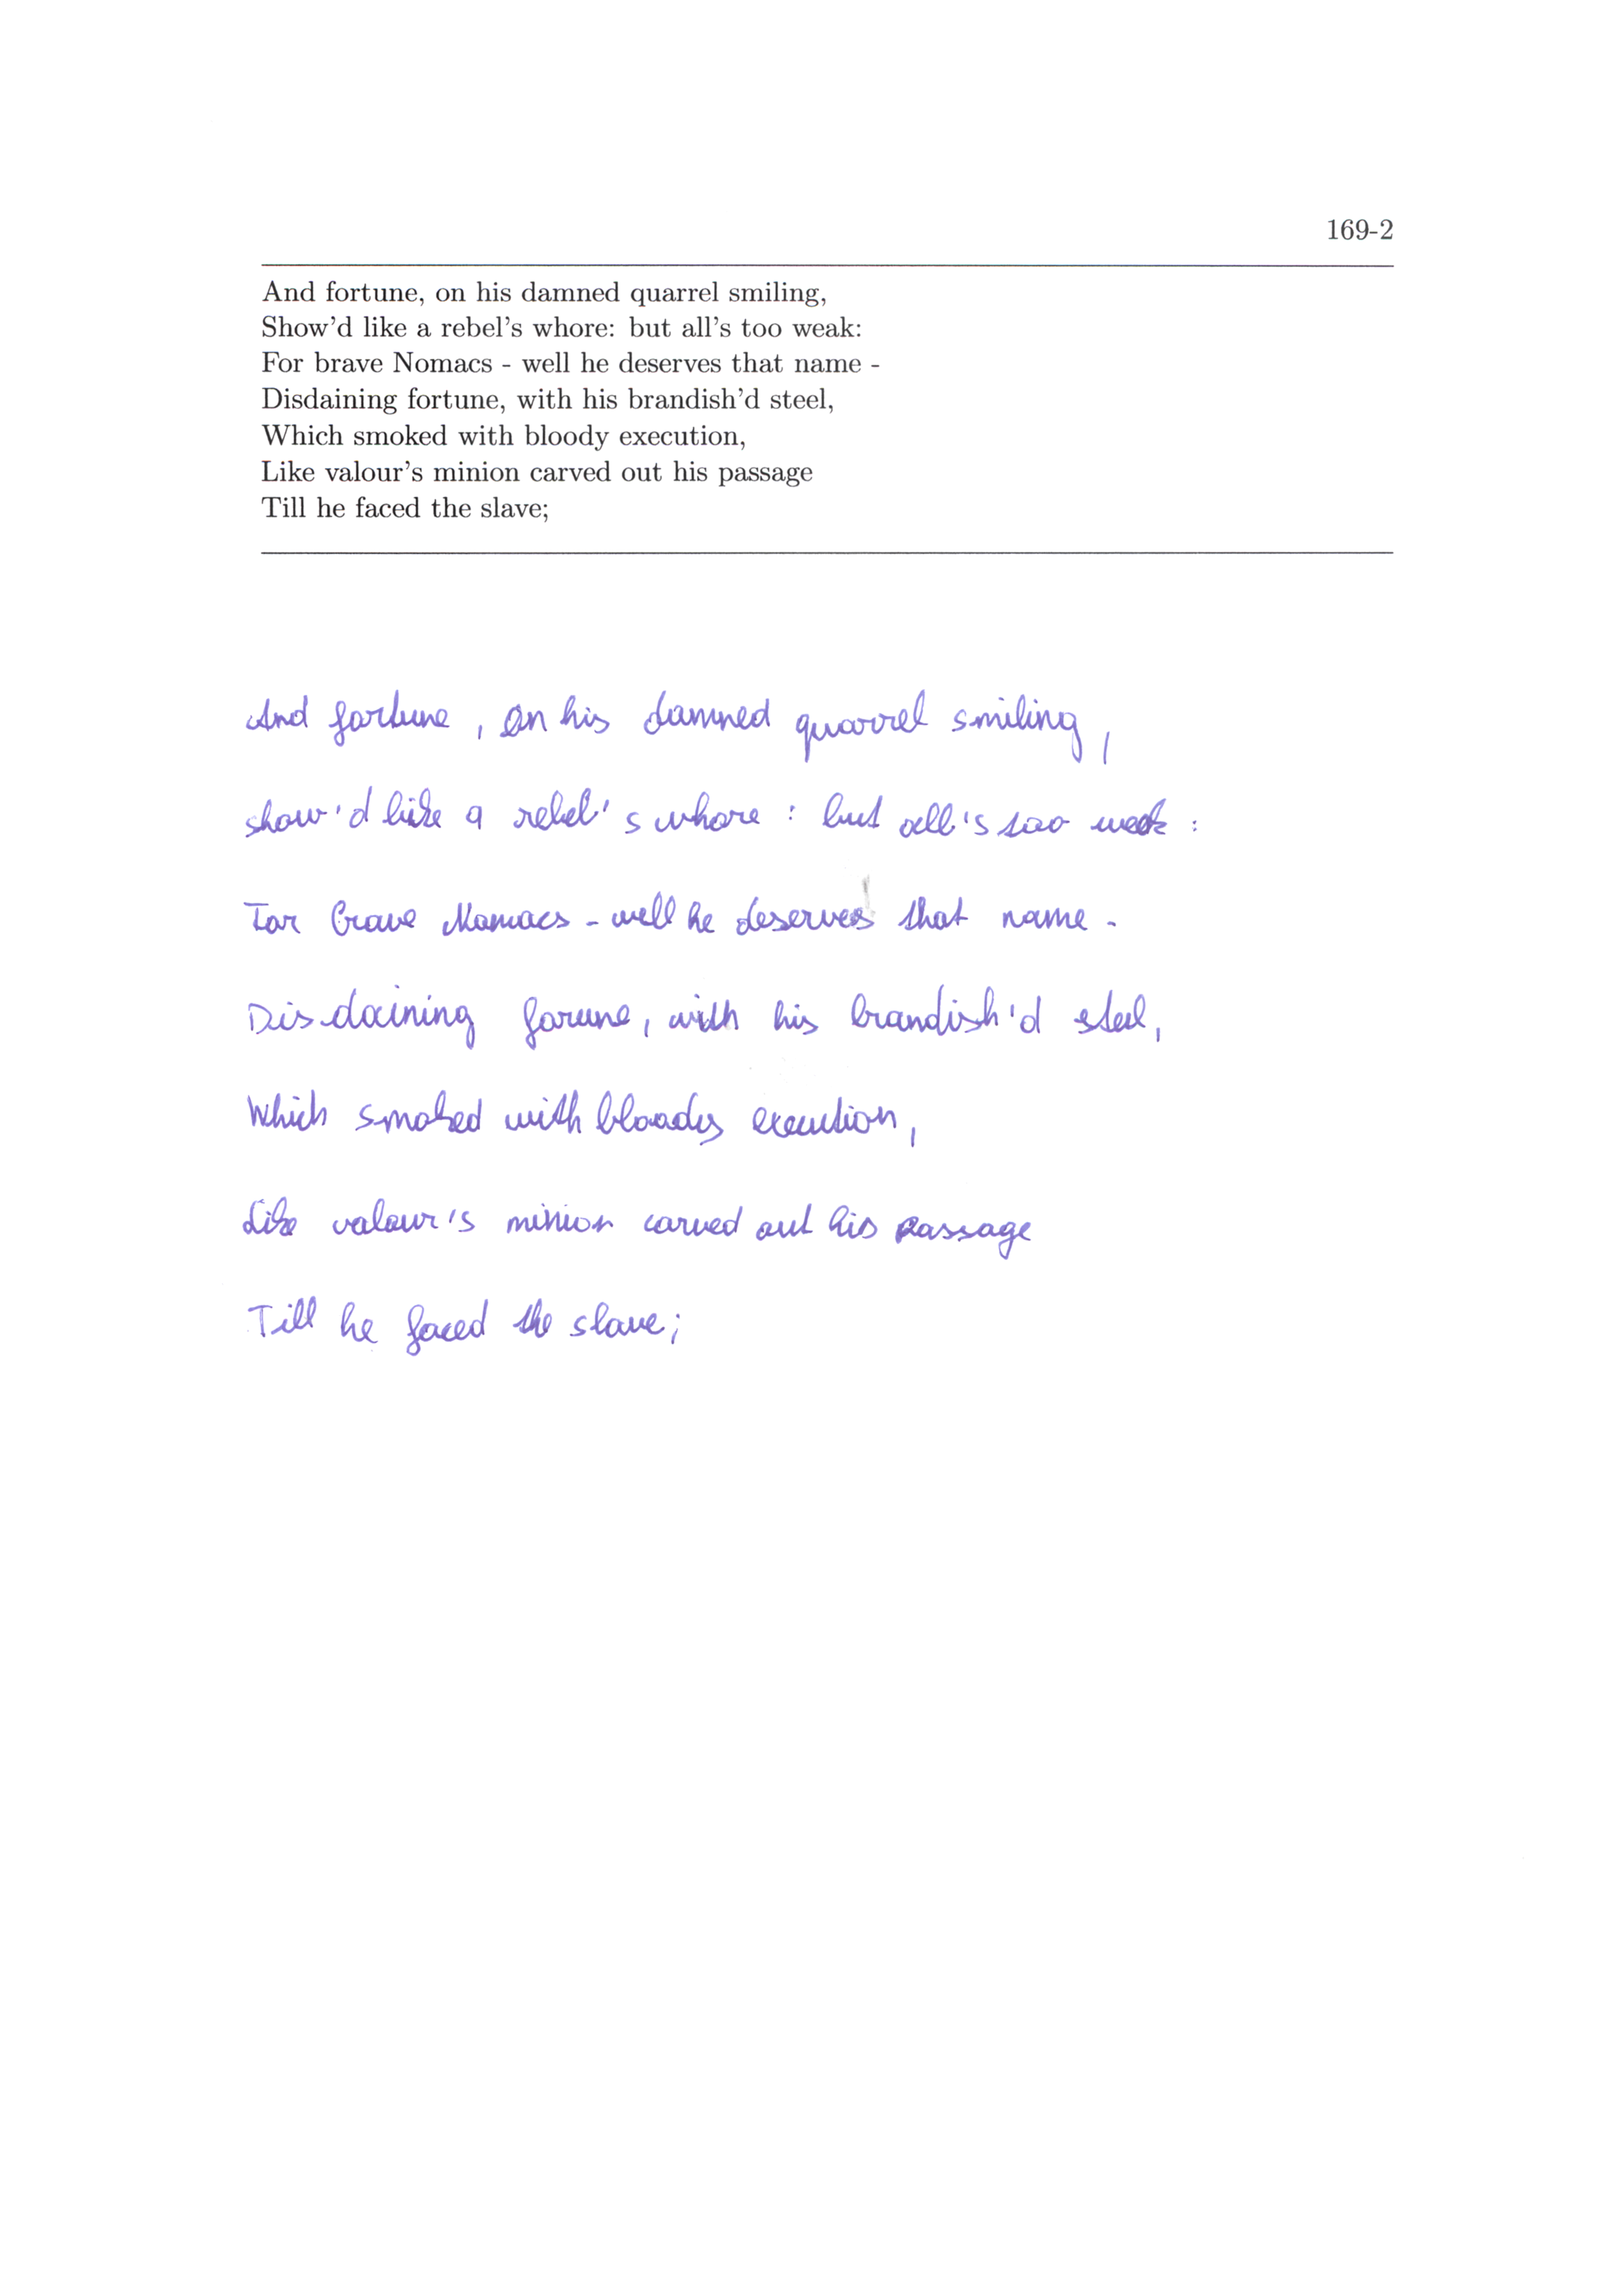 169-2
And fortune, on his damned quarrel smiling,
Show'd like a rebel's whore: but all's too weak:
For brave Nomacs - well he deserves that name -
Disdaining fortune, with his brandish'd steel,
Which smoked with bloody execution,
Like valour's minion carved out his passage
Till he faced the slave;
And fortune, on his damned quarrel smiling,
show'd like a rebel's whore: but all's too weak:
For brave Nomacs - well he deserves that name -
Disdaining forune, with his brandish'd steel,
Which smoked with bloody execution,
Like valour's minion carved out his passage
Till he faced the slave;